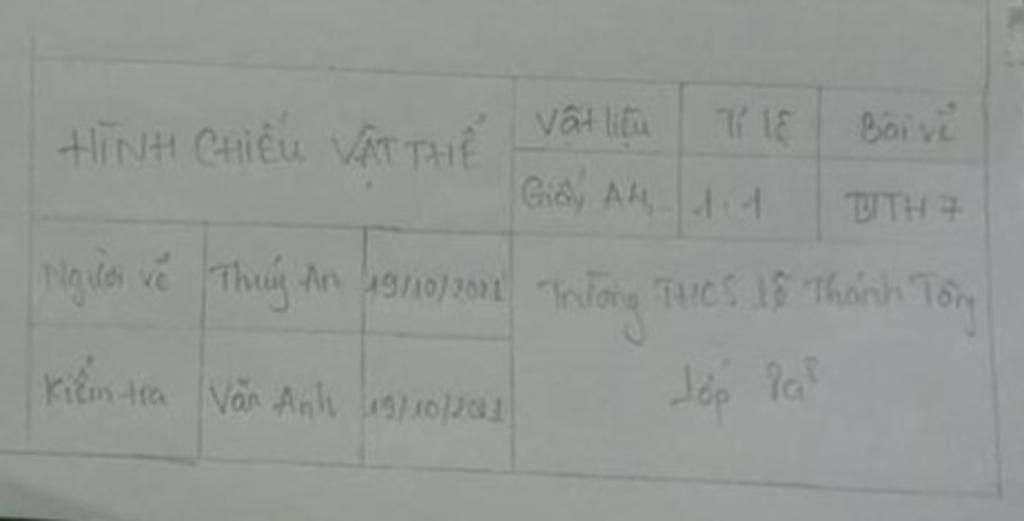 HÌNH CHIẾU VẬT THỂ
Vật liệu Tỉ lệ Bài vẽ
Giấy A4 1:1 BTTH 7
Người vẽ Thuý An 19/10/2021
Trường THCS Lê Thánh Tông
Kiểm tra Văn Anh 19/10/2021
Lớp